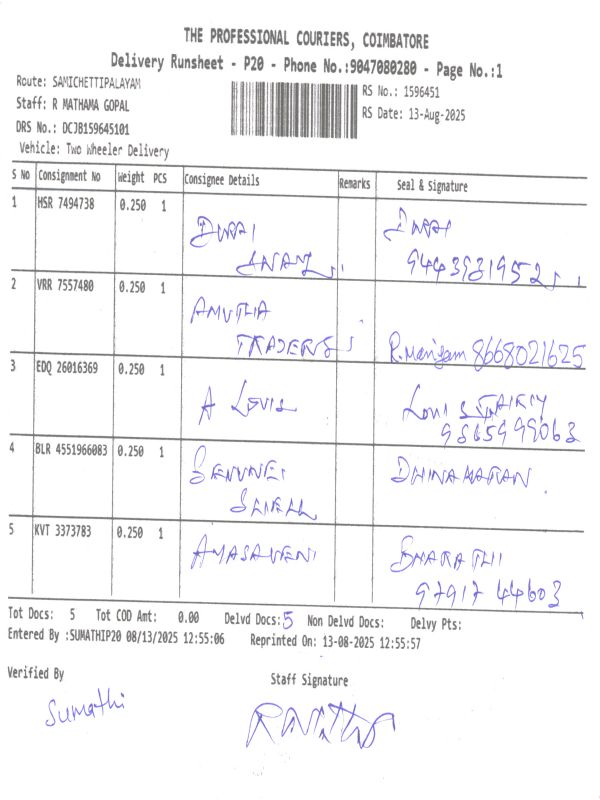 THE PROFESSIONAL COURIERS, COIMBATORE
Delivery Runsheet - P20 - Phone No.:9047080280 - Page No.:1
Route: SAMICHETTIPALAYAM
RS No.: 1596451
Staff: R MATHAMA GOPAL
RS Date: 13-Aug-2025
DRS No.: DCJB159645101
Vehicle: Two Wheeler Delivery
S No Consignment No Weight PCS Consignee Details Remarks Seal & Signature
1 MSR 7494738 0.250 1
DURAI DURAI
9443931952
2 VRR 7557480 0.250 1
AMUTHA
TRADERS R.Mariyam 8668021625
3 EDQ 26016369 0.250 1
A LOUIS Louis
9865999063
4 BLR 4551966083 0.250 1
DHINAKARAN
5 KVT 3373783 0.250 1
AMASAVENI BHARATHI
97917 44603
Tot Docs: 5 Tot COD Amt: 0.00 Delvd Docs: 5 Non Delvd Docs: Delvy Pts:
Entered By :SUMATHIP20 08/13/2025 12:55:06 Reprinted On: 13-08-2025 12:55:57
Verified By Staff Signature
Sumathi